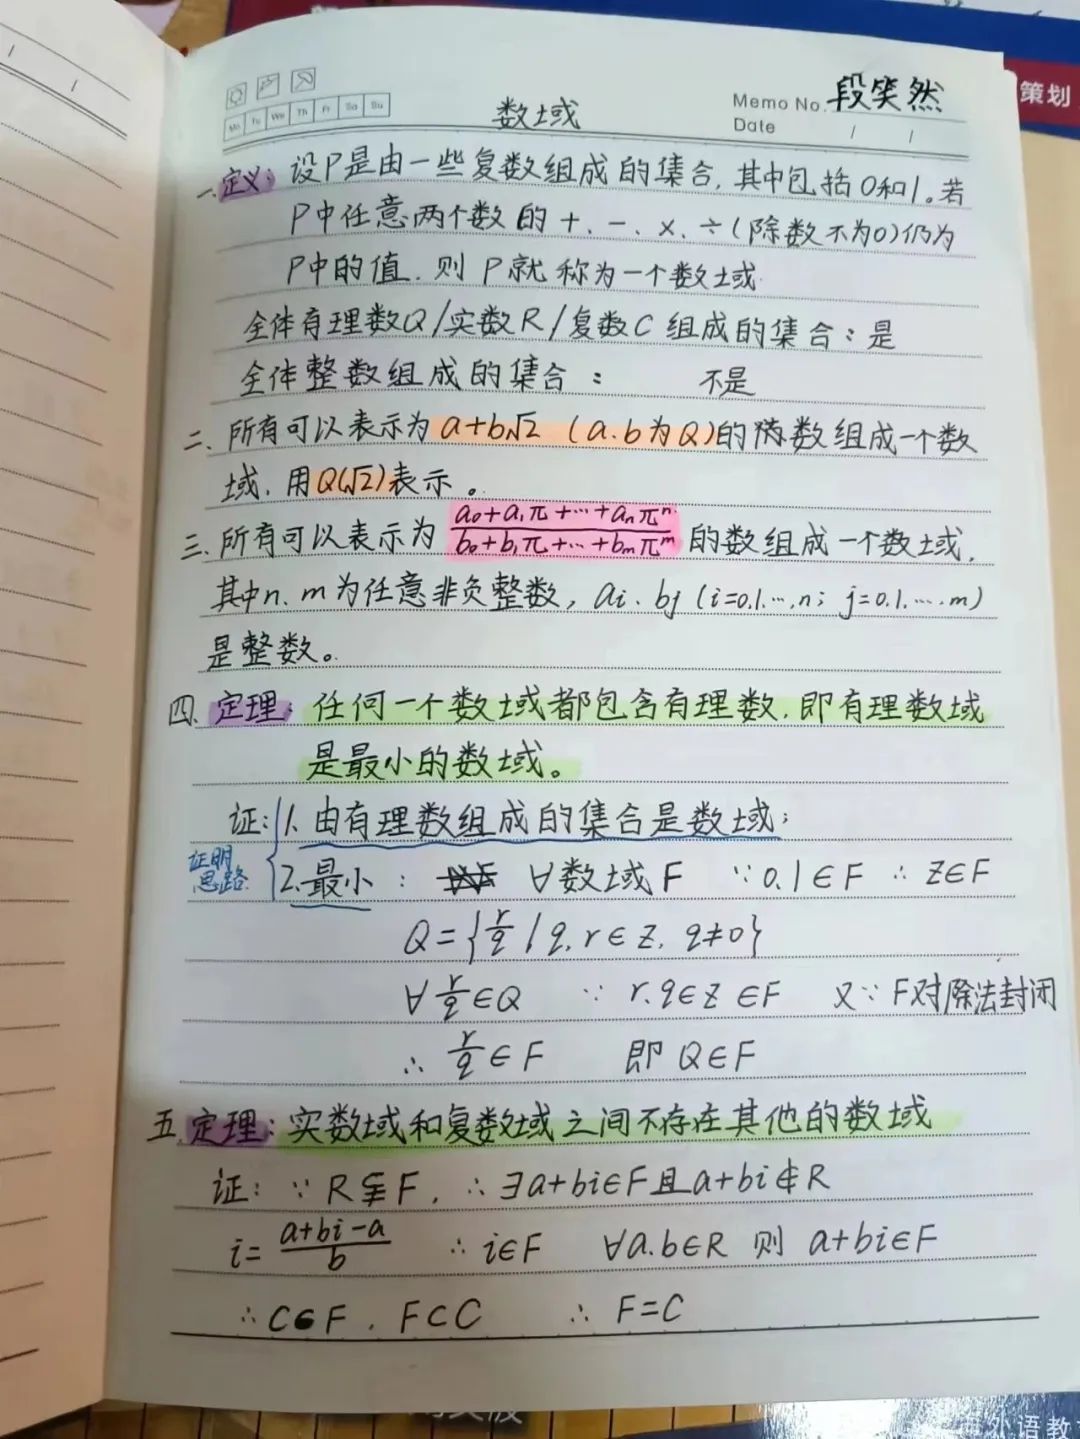 策划
Mo Tu We Th Fr Sa Su
数域
Memo No. 段笑然
Date / /
一、定义：设P是由一些复数组成的集合，其中包括0和1。若
P中任意两个数的+、-、×、÷(除数不为0)仍为
P中的值，则P就称为一个数域.
全体有理数Q/实数R/复数C组成的集合：是
全体整数组成的集合： 不是
二、所有可以表示为a+b√2 (a.b为Q)的数组成一个数
域，用Q(√2)表示。
三、所有可以表示为 (a₀+a₁π+…+aₙπⁿ)/(b₀+b₁π+…+bₘπᵐ) 的数组成一个数域，
其中n、m为任意非负整数，ai、bj (i=0.1.…,n; j=0.1.….m)
是整数。
四、定理：任何一个数域都包含有理数，即有理数域
是最小的数域。
证：1.由有理数组成的集合是数域；
证明
思路
2.最小： ∀数域F ∵0.1∈F ∴Z∈F
Q={r/q | q,r∈Z, q≠0}
∀ r/q∈Q ∵ r.q∈Z∈F 又∵F对除法封闭
∴ r/q∈F 即Q∈F
五.定理：实数域和复数域之间不存在其他的数域
证：∵R⫋F, ∴∃a+bi∈F且a+bi∉R
i=(a+bi-a)/b ∴i∈F ∀a.b∈R 则 a+bi∈F
∴C⊂F, F⊂C ∴F=C
外语教